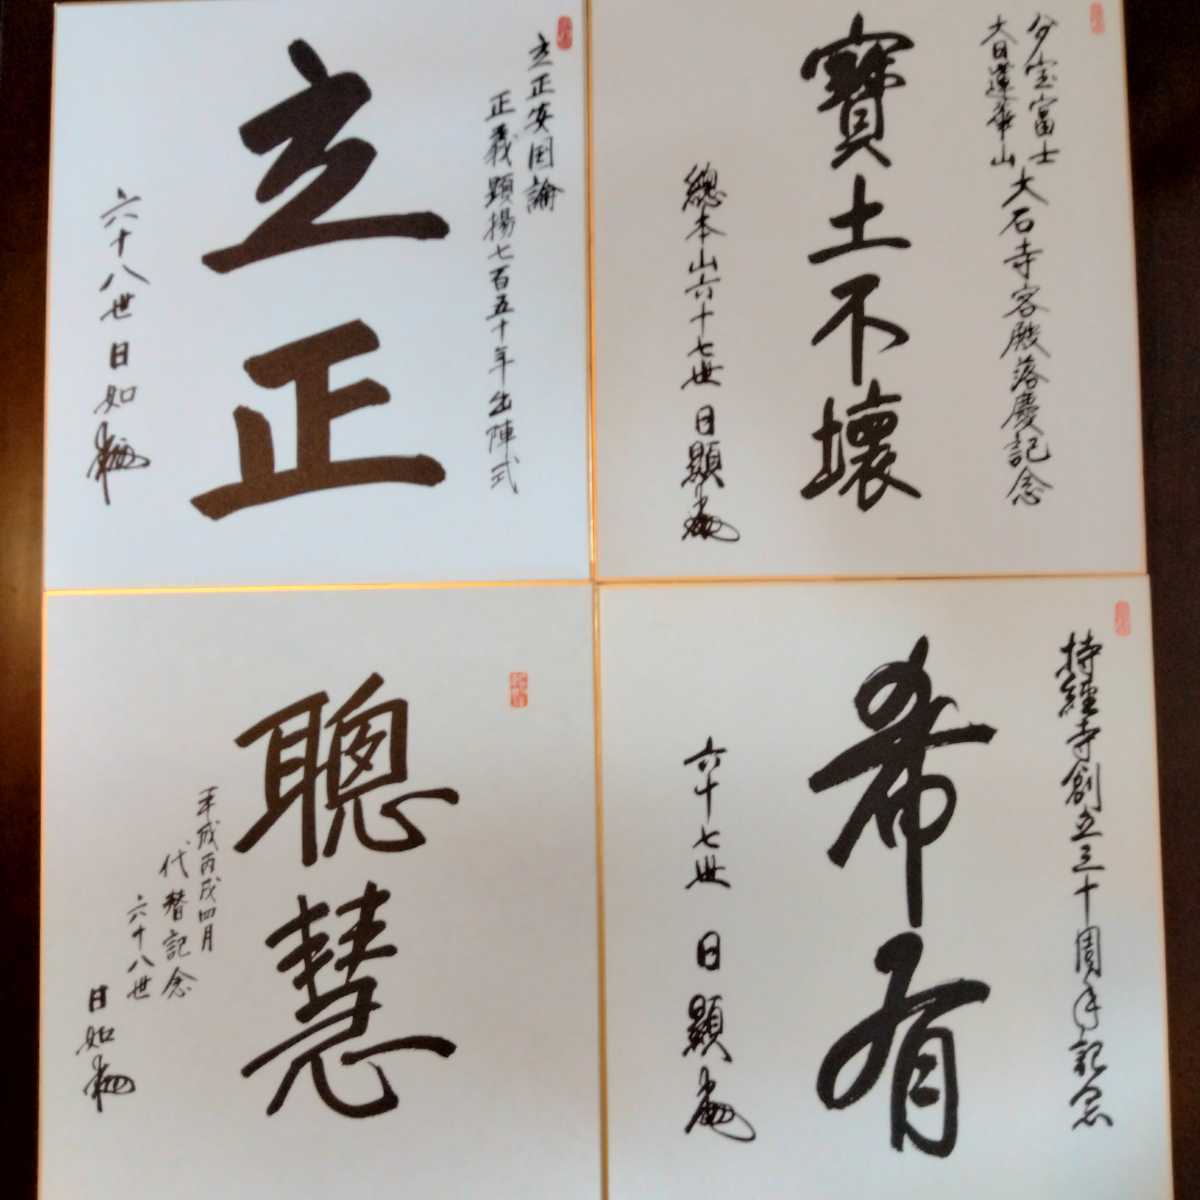 立正安国論
正義顕揚七百五十年出陣式
立正
六十八世 日如
多宝富士
大日蓮華山
大石寺客殿落慶記念
寶土不壊
總本山六十七世 日顯
聰慧
平成丙戌四月
代替記念
六十八世
日如
持經寺創立三十周年記念
希有
六十七世 日顯